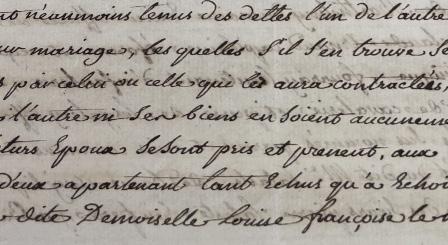 néunmoins tenus des dettes l'un de l'autre
mariage, les quelles s'il s'en trouve se
par celui ou celle qui les aura contractées,
l'autre ni ses biens en soient aucuneme
turs Epoux se sont pris et prenent, aux
d'eux apartenant tant Echus qu'a Echoi
dite Demoiselle Louise françoise le